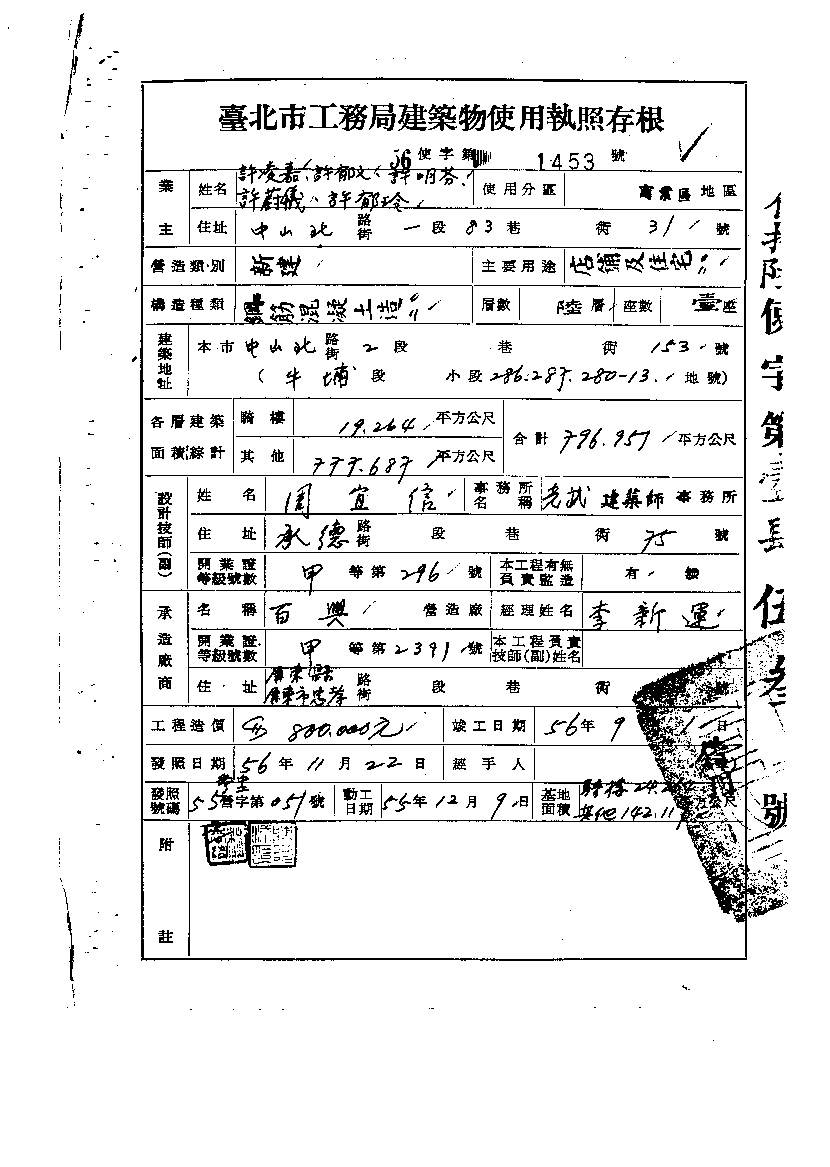 臺北市工務局建築物使用執照存根
56 使字第 1453 號
業主 姓名 許凌嘉、許郁文、許明芬、許蔚儀、許郁玲 使用分區 商業區 地區
住址 中山北 路街 一段 83 巷 街 31 號
營造類別 新建 主要用途 店舖及住宅
構造種類 鋼筋混凝土造 層數 陸層 座數 壹座
建築地址 本市 中山北 路街 2 段 巷 街 153 號
( 牛埔 段 小段 286.287.280-13. 地號)
各層建築面積綜計 騎樓 19.264 平方公尺 合計 796.951 平方公尺
其他 777.687 平方公尺
設計技師(副) 姓名 周宜信 事務所名稱 光武 建築師 事務所
住址 承德 路街 段 巷 街 75 號
開業證等級號數 甲 等第 296 號 本工程有無負責監造 有 無
承造廠商 名稱 百興 營造廠 經理姓名 李新運
開業證等級號數 甲 等第 2391 號 本工程負責技師(副)姓名
住址 屏東縣屏東市忠孝 路街 段 巷 街 號
工程造價 800.000元 竣工日期 56年 9 月 1 日
發照日期 56 年 11 月 22 日 經手人
發照號碼 55 營字第 051 號 動工日期 55年 12 月 9 日 基地面積 騎樓 其他142.11 平方公尺
附註
使字第壹長伍叁號